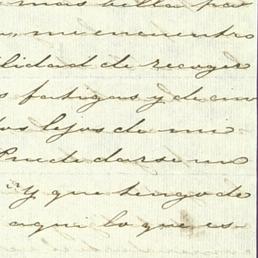 mas bella por
, me encuentro
ilidad de recoger
s fatigas y de en
dos lejos de mi
Puede darse un
Y que tengo de
aqui lo que es